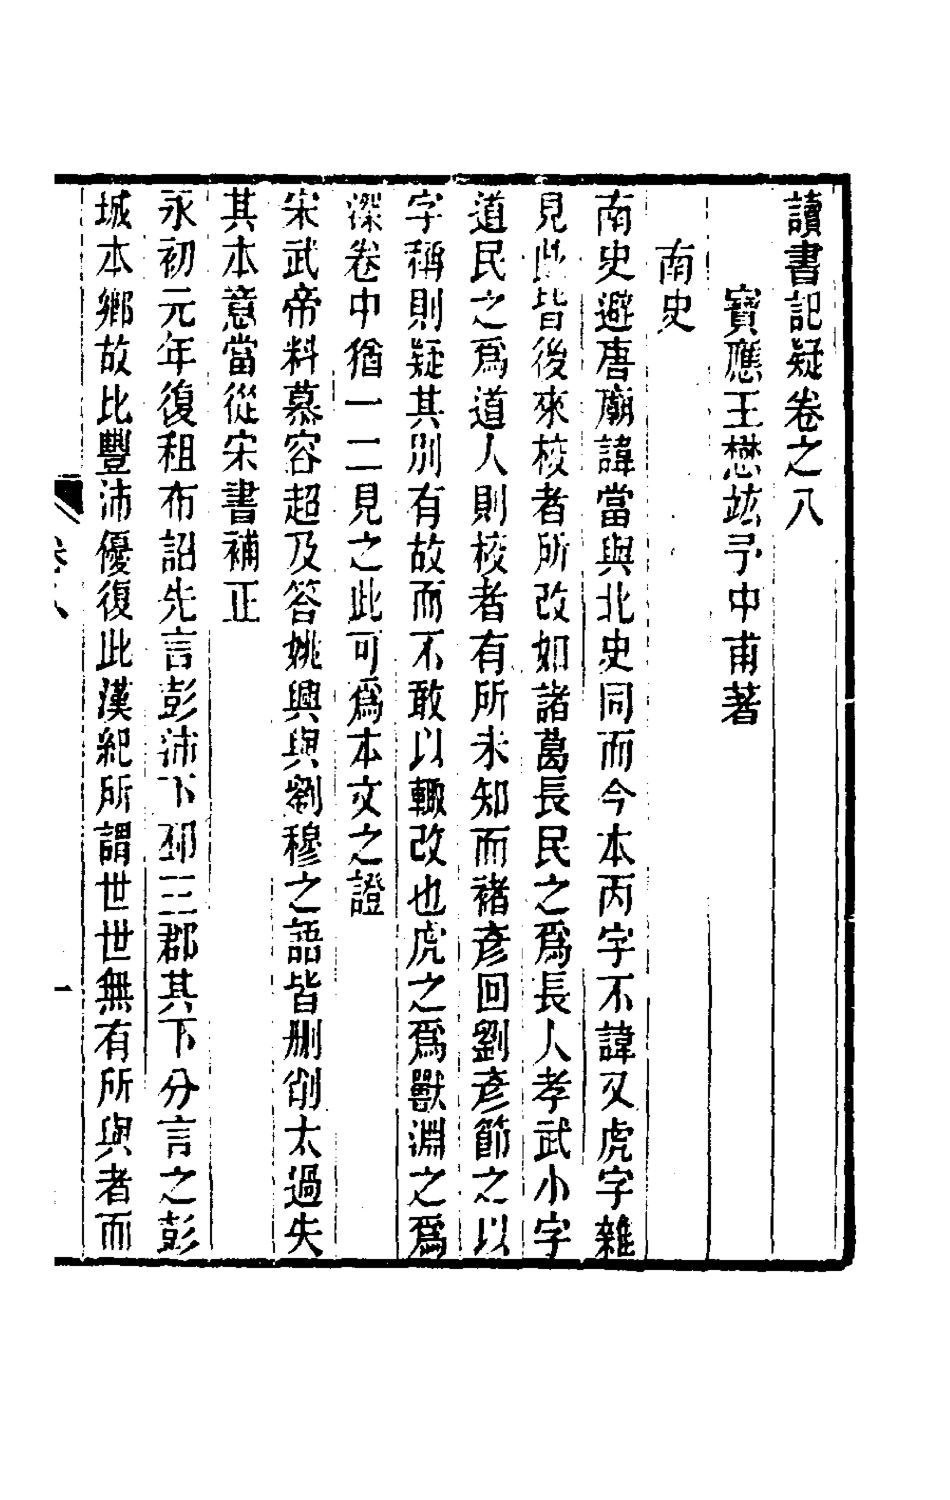 讀書記疑卷之八
寶應王懋竑予中甫著
南史
南史避唐廟諱當與北史同而今本丙字不諱又虎字雜
見此皆後來校者所改如諸葛長民之爲長人孝武小字
道民之爲道人則校者有所未知而褚彥回劉彥節之以
字稱則疑其別有故而不敢以輙改也虎之爲獸淵之爲
深卷中猶一二見之此可爲本文之證
宋武帝料慕容超及答姚興與劉穆之語皆删削太過失
其本意當從宋書補正
永初元年復租布詔先言彭沛下邳三郡其下分言之彭
城本鄉故比豐沛優復此漢紀所謂世世無有所與者而
卷八
一